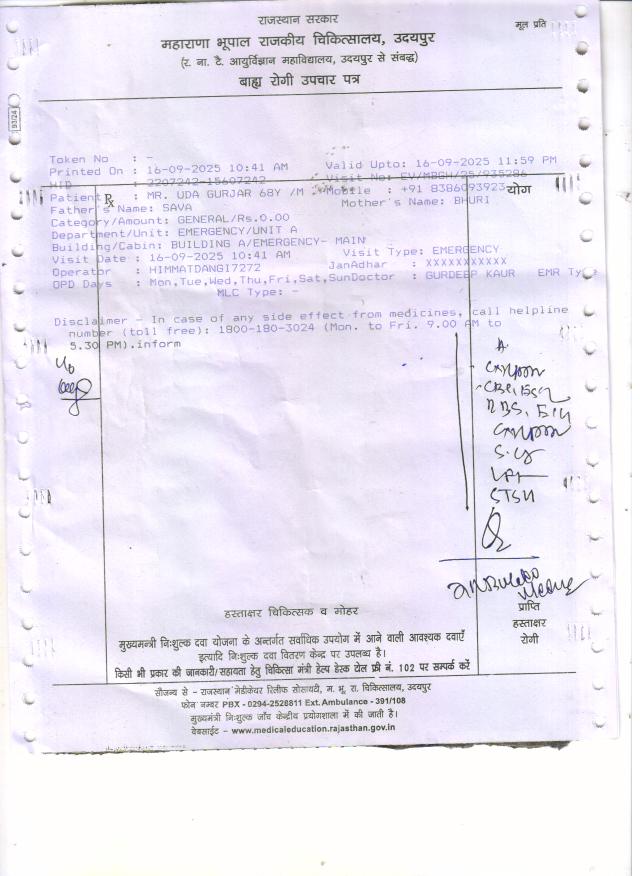 राजस्थान सरकार
मूल प्रति
महाराणा भूपाल राजकीय चिकित्सालय, उदयपुर
(र. ना. टै. आयुर्विज्ञान महाविद्यालय, उदयपुर से संबद्ध)
बाह्य रोगी उपचार पत्र
93/24
Token No : -
Printed On : 16-09-2025 10:41 AM Valid Upto: 16-09-2025 11:59 PM
HID : 2207242-15607242 Visit No: EV/MBGH/25/935286
Patient : MR. UDA GURJAR 68Y /M Mobile : +91 8386093923
Rx
योग
Father's Name: SAVA Mother's Name: BHURI
Category/Amount: GENERAL/Rs.0.00
Department/Unit: EMERGENCY/UNIT A
Building/Cabin: BUILDING A/EMERGENCY- MAIN
Visit Date : 16-09-2025 10:41 AM Visit Type: EMERGENCY
Operator : HIMMATDANGI7272 JanAdhar : XXXXXXXXXXX
OPD Days : Mon,Tue,Wed,Thu,Fri,Sat,SunDoctor : GURDEEP KAUR EMR Type
MLC Type: -
Disclaimer - In case of any side effect from medicines, call helpline
number (toll free): 1800-180-3024 (Mon. to Fri. 9.00 AM to
5.30 PM).inform
CBC,
RBS,
हस्ताक्षर चिकित्सक व मोहर
प्राप्ति
हस्ताक्षर
रोगी
मुख्यमन्त्री निःशुल्क दवा योजना के अन्तर्गत सर्वाधिक उपयोग में आने वाली आवश्यक दवाएँ
इत्यादि निःशुल्क दवा वितरण केन्द्र पर उपलब्ध है।
किसी भी प्रकार की जानकारी/सहायता हेतु चिकित्सा मंत्री हेल्प डेस्क टोल फ्री नं. 102 पर सम्पर्क करें
सौजन्य से - राजस्थान मेडीकेयर रिलीफ सोसायटी, म. भू. रा. चिकित्सालय, उदयपुर
फोन नम्बर PBX - 0294-2528811 Ext. Ambulance - 391/108
मुख्यमंत्री निःशुल्क जाँच केन्द्रीय प्रयोगशाला में की जाती है।
वेबसाईट - www.medicaleducation.rajasthan.gov.in